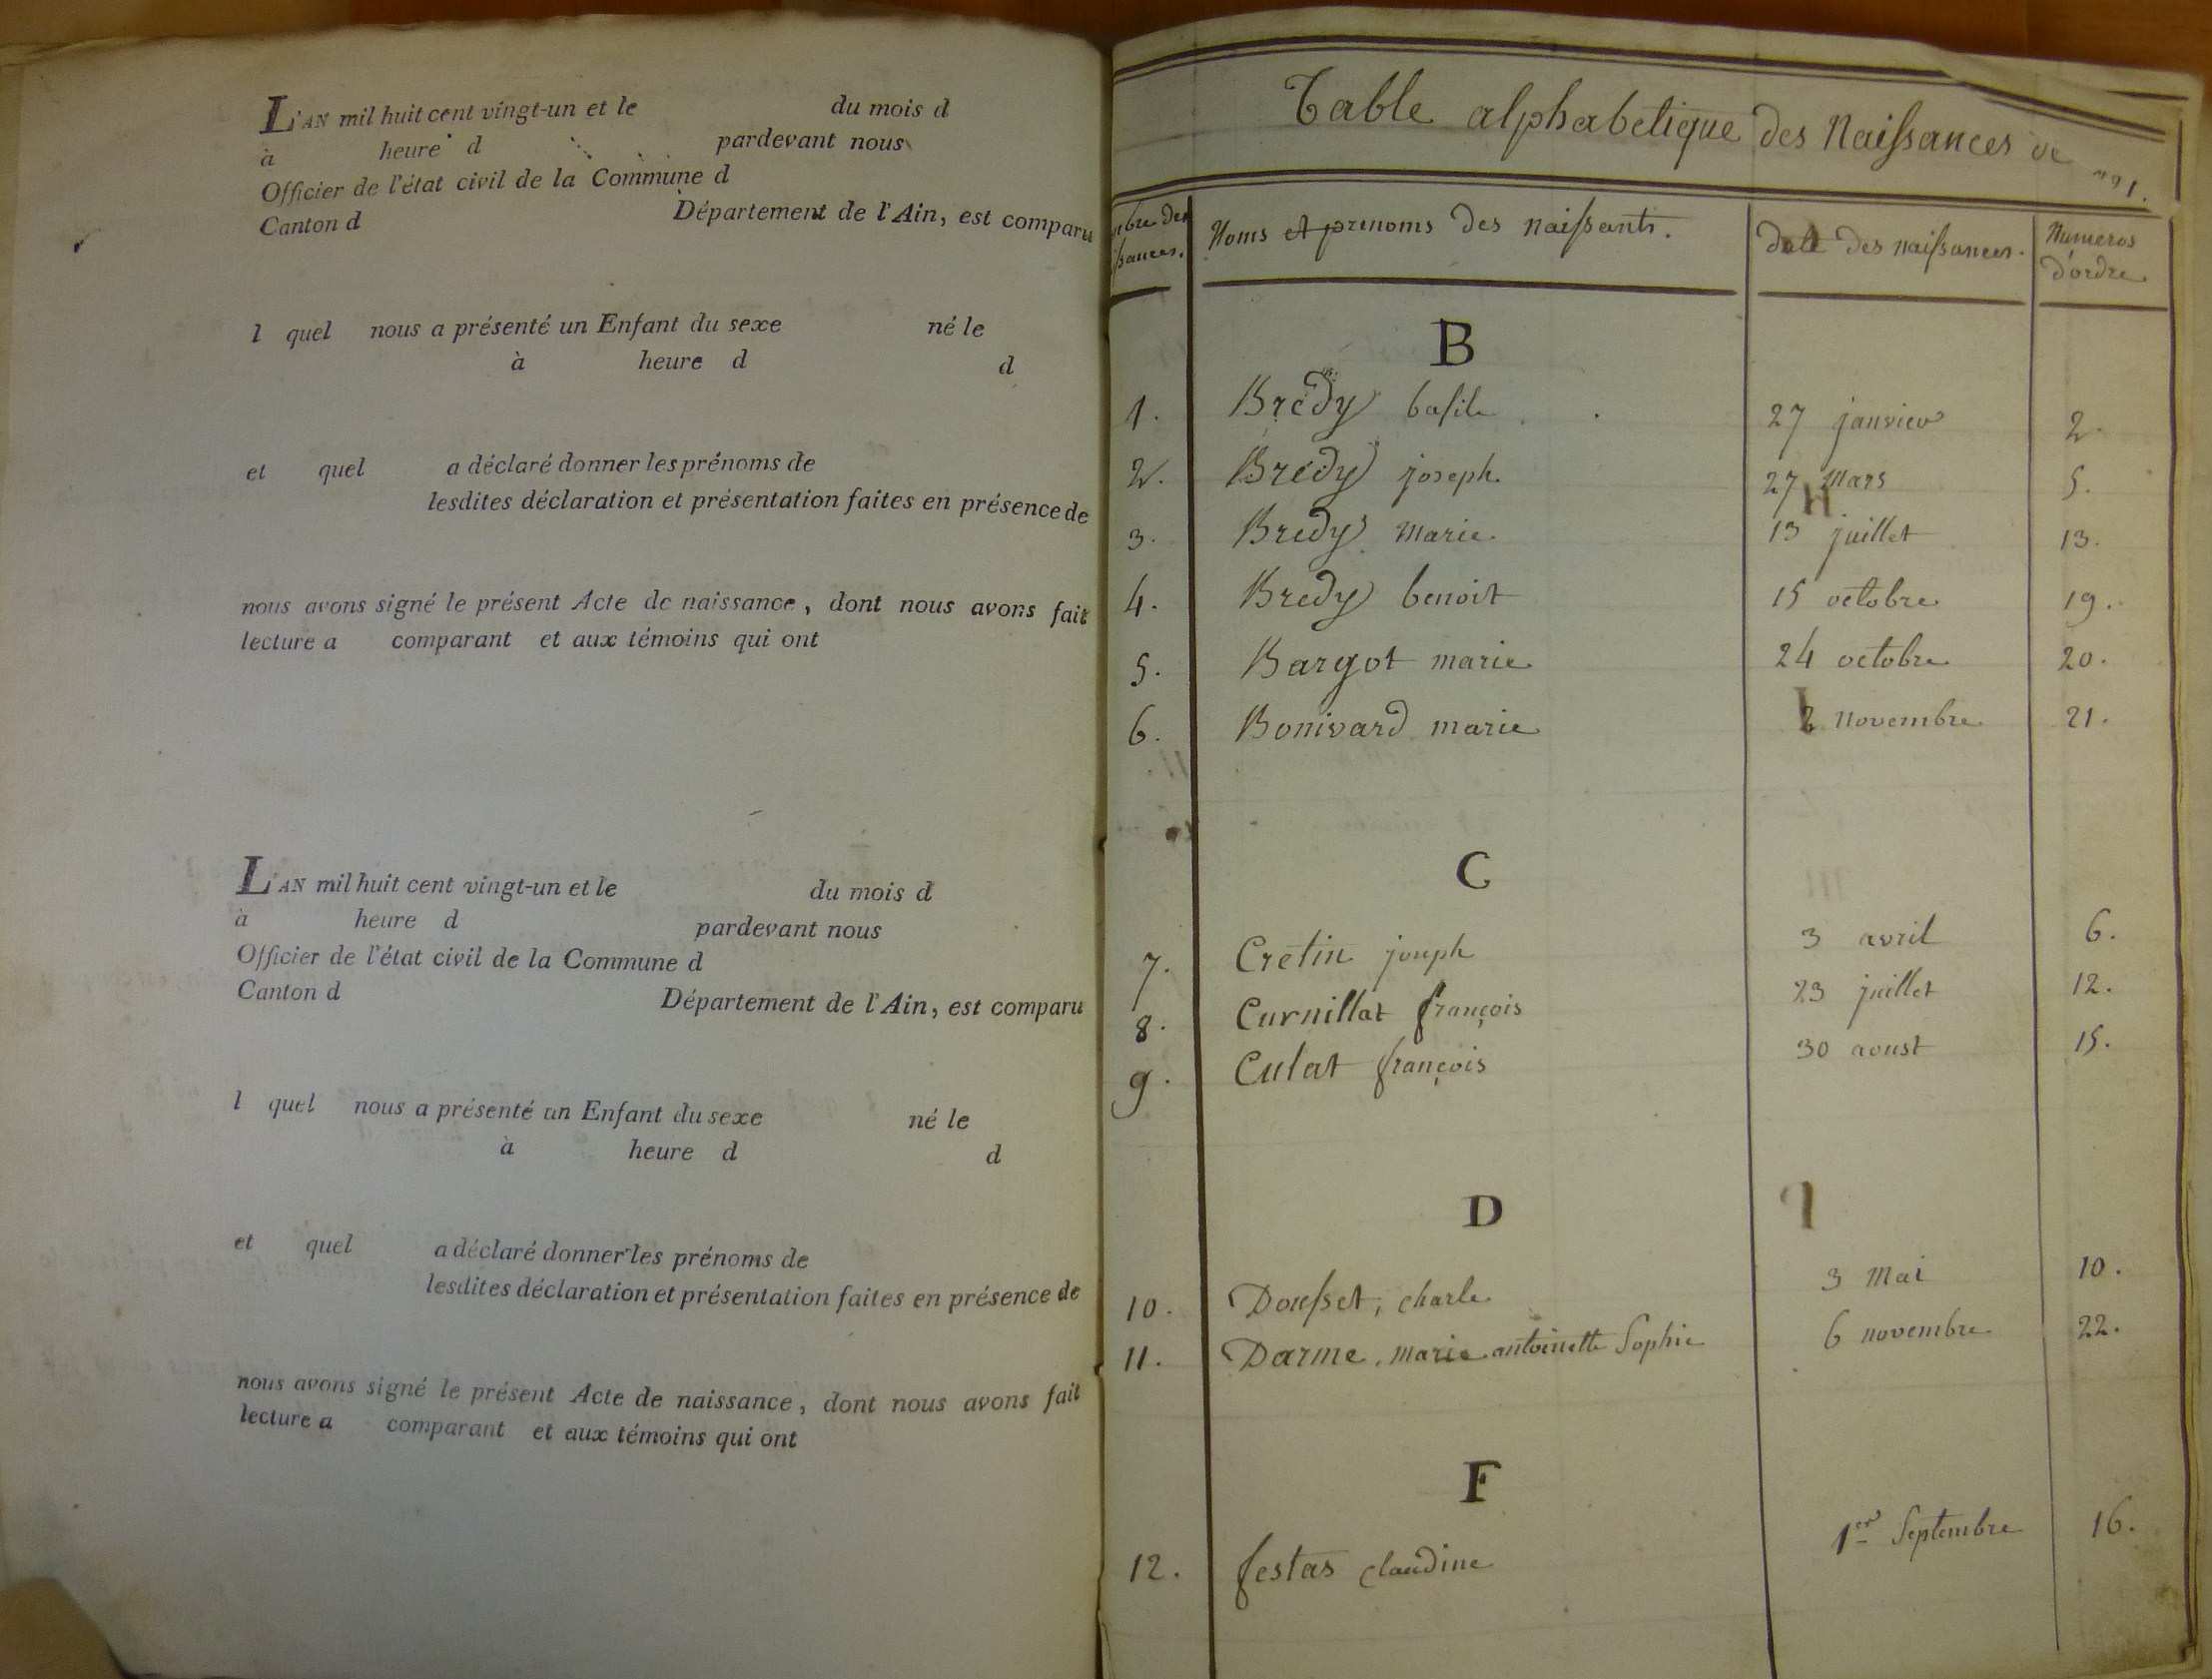 L'AN mil huit cent vingt-un et le du mois d
à heure d pardevant nous
Officier de l'état civil de la Commune d
Canton d Département de l'Ain, est comparu
l quel nous a présenté un Enfant du sexe né le
à heure d d
et quel a déclaré donner les prénoms de
lesdites déclaration et présentation faites en présence de
nous avons signé le présent Acte de naissance, dont nous avons fait
lecture a comparant et aux témoins qui ont
L'AN mil huit cent vingt-un et le du mois d
à heure d pardevant nous
Officier de l'état civil de la Commune d
Canton d Département de l'Ain, est comparu
l quel nous a présenté un Enfant du sexe né le
à heure d d
et quel a déclaré donner les prénoms de
lesdites déclaration et présentation faites en présence de
nous avons signé le présent Acte de naissance, dont nous avons fait
lecture a comparant et aux témoins qui ont
Table alphabetique des Naissances de
Noms et prenoms des naissants. date des naissances. Numeros
d'ordre
B
1. Bredy basile 27 janvier 2.
2. Bredy joseph 27 Mars 5.
3. Bredy Marie 13 juillet 13.
4. Bredy benoit 15 octobre 19.
5. Bargot marie 24 octobre 20.
6. Bonivard marie 2 Novembre 21.
C
7. Cretin joseph 3 avril 6.
8. Curnillat françois 23 juillet 12.
9. Culat françois 30 aoust 15.
D
10. Dousset, charle 3 Mai 10.
11. Darme, marie antoinette Sophie 6 novembre 22.
F
12. festas claudine 1er Septembre 16.